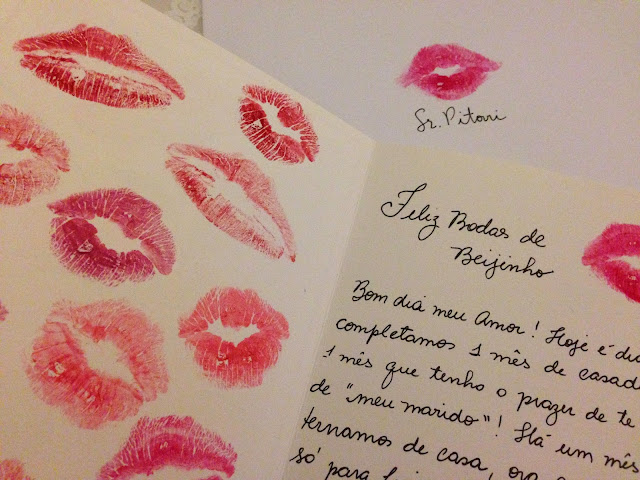 Sr. Pitori
Feliz Bodas de
Beijinho
Bom dia meu Amor! Hoje é
completamos 1 mês de
1 mês que tenho o prazer de te
de "meu marido"! Há um mês
ternamos de casa,
só para